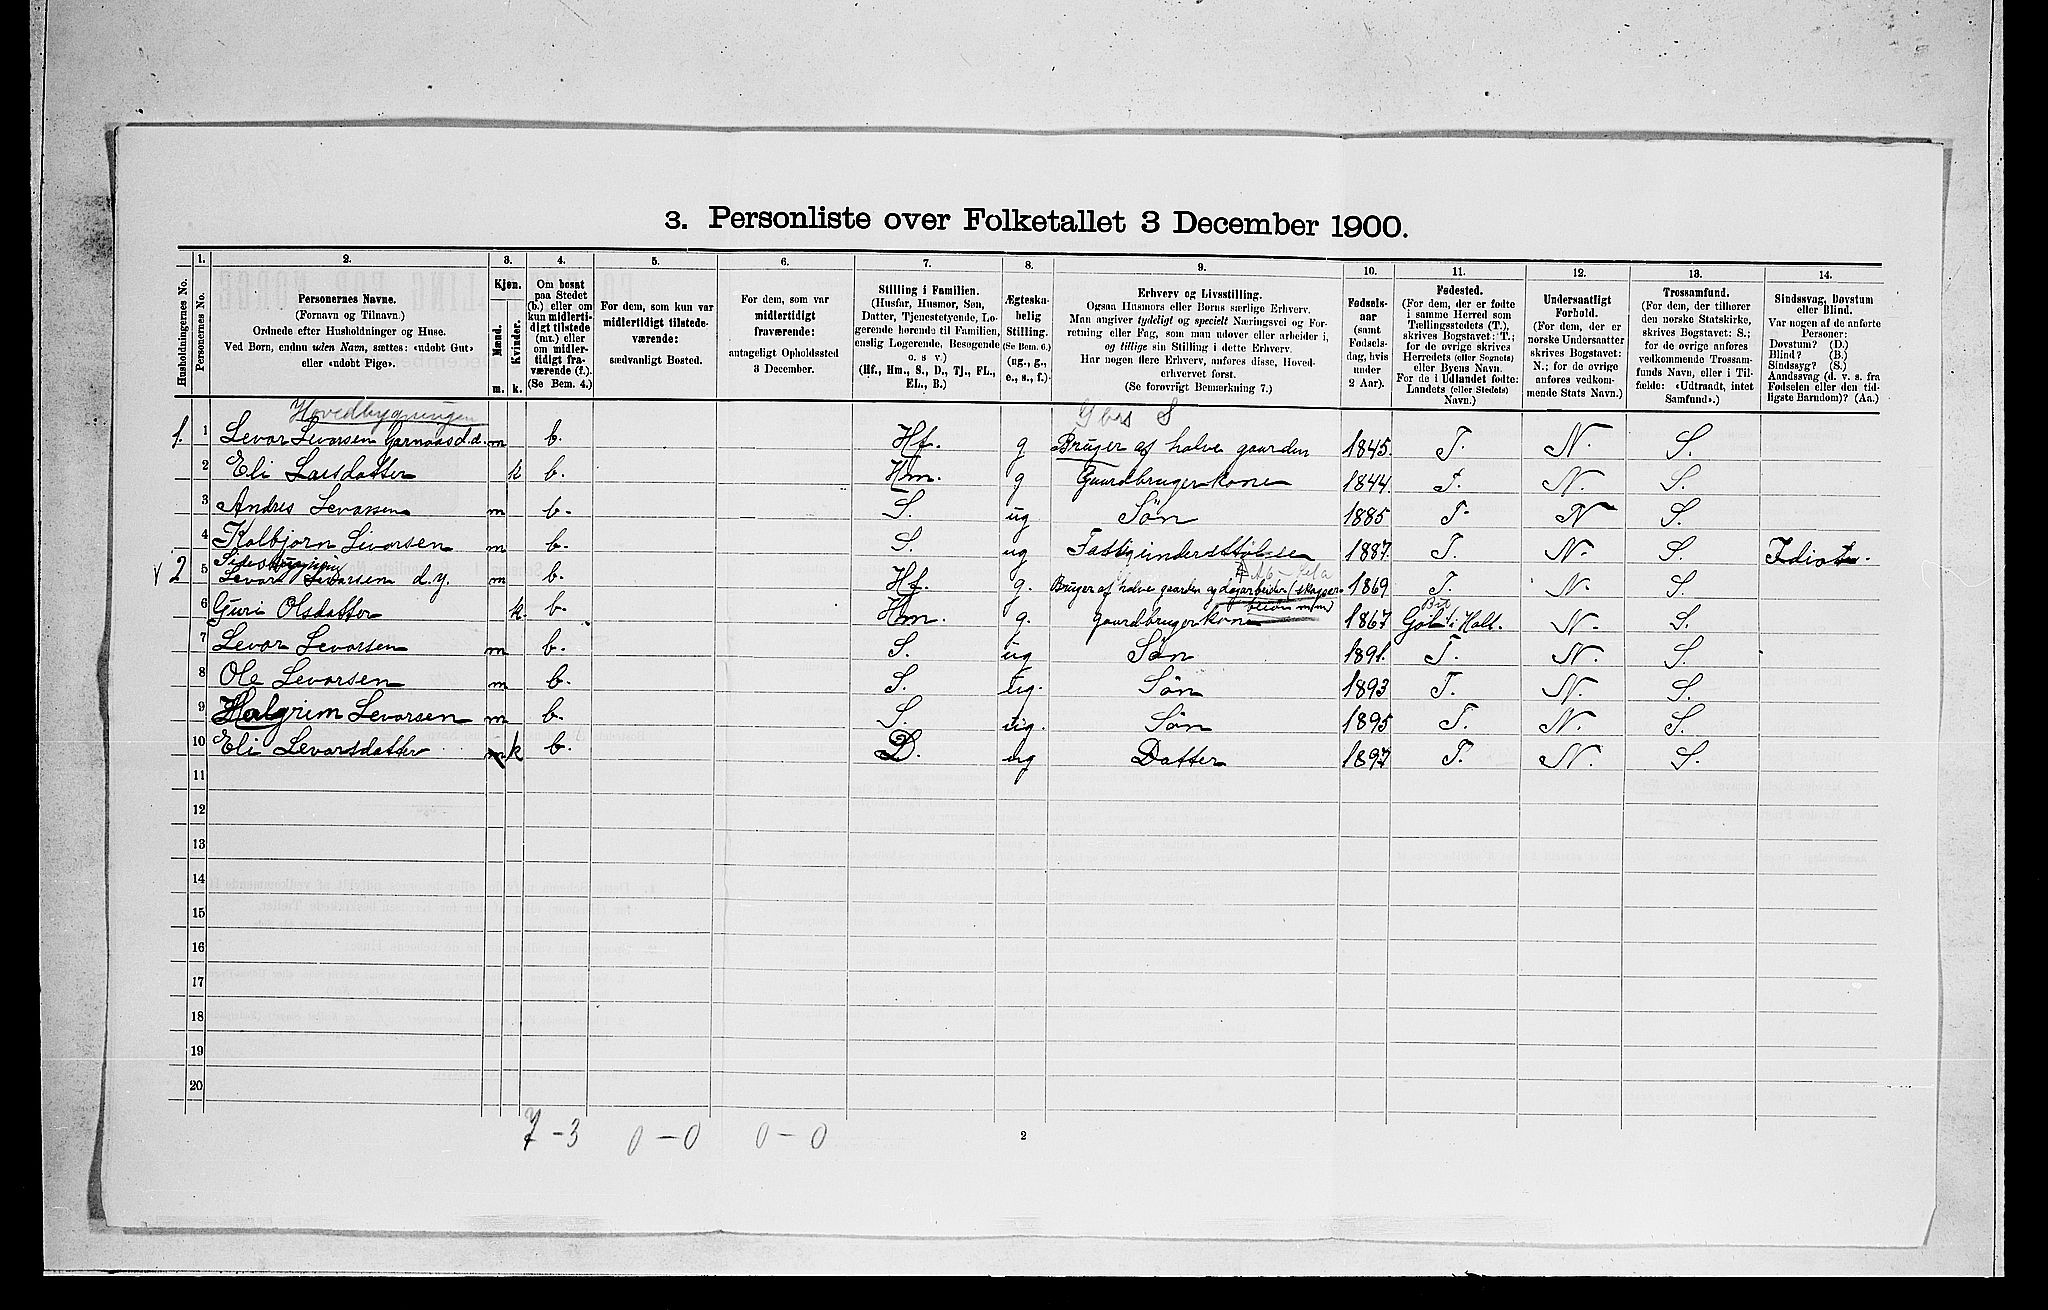 3. Personliste over Folketallet 3 December 1900.
1. 2. 3. 4. 5. 6. 7. 8. 9. 10. 11. 12. 13. 14.
Husholdningernes No.
Personernes No.
Personernes Navne.
(Fornavn og Tilnavn.)
Ordnede efter Husholdninger og Huse.
Ved Børn, endnu uden Navn, sættes: «udøbt Gut»
eller «udøbt Pige».
Kjøn.
Mænd.
Kvinder.
m. k.
Om bosat
paa Stedet
(b.) eller om
kun midlerti-
digt tilstede
(mt.) eller
om midler-
tidigt fra-
værende (f.).
(Se Bem. 4.)
For dem, som kun var
midlertidigt tilstede-
værende:
sædvanligt Bosted.
For dem, som var
midlertidigt
fraværende:
antageligt Opholdssted
3 December.
Stilling i Familien.
(Husfar, Husmor, Søn,
Datter, Tjenestetyende, Lo-
gerende hørende til Familien,
enslig Logerende, Besøgende
o. s. v.)
(Hf., Hm., S., D., Tj., FL.,
EL., B.)
Ægteska-
belig
Stilling.
(Se Bem. 6.)
(ug., g.,
e., s., f.).
Erhverv og Livsstilling.
Ogsaa Husmors eller Børns særlige Erhverv.
Man angiver tydeligt og specielt Næringsvei og For-
retning eller Fag, som man udøver eller arbeider i,
og tillige sin Stilling i dette Erhverv.
Har nogen flere Erhverv, anføres disse, Hoved-
erhvervet først.
(Se forøvrigt Bemerkning 7.)
Fødsels-
aar
(samt
Fødsels-
dag, hvis
under
2 Aar).
Fødested.
(For dem, der er fødte
i samme Herred som
Tællingsstedets (T.),
skrives Bogstavet: T.;
for de øvrige skrives
Herredets (eller Sognets)
eller Byens Navn.
For de i Udlandet fødte:
Landets (eller Stedets)
Navn.)
Undersaatligt
Forhold.
(For dem, der er
norske Undersaatter
skrives Bogstavet:
N.; for de øvrige
anføres vedkom-
mende Stats Navn.)
Trossamfund.
(For dem, der tilhører
den norske Statskirke,
skrives Bogstavet: S.;
for de øvrige anføres
vedkommende Trossam-
funds Navn, eller i Til-
fælde: «Udtraadt, intet
Samfund».)
Sindssvag, Døvstum
eller Blind.
Var nogen af de anførte
Personer:
Døvstum? (D.)
Blind? (B.)
Sindssyg? (S.)
Aandssvag (d. v. s. fra
Fødselen eller den tid-
ligste Barndom)? (Aa.)
Hovedbygningen
1. 1 Levor Levorsen Garnaas d.æ. m b. Hf. g Bruger af halve gaarden 1845. T. N. S.
2 Eli Larsdatter k b. Hm. g Gaardbrugerkone 1844. T. N. S.
3 Andres Levorsen m b. S. ug Søn 1885 T. N S.
4 Kolbjørn Levorsen m b. S. ug Fattigunderstøttelse 1887. T. N. S. Idiot.
Sidebygning
2 5 Levor Levorsen d.y. m b. Hf. g. Bruger af halve gaarden og dagarbeider 1869 T. N. S.
6 Guri Olsdatter k. b. Hm. g. gaardbrugerkone 1867 Gol i Hall. N. S.
7 Levor Levorsen m b. S. ug Søn 1891. T. N. S.
8 Ole Levorsen m b. S. ug. Søn 1893 T. N. S.
9 Halgrim Levorsen m b. S. ug. Søn 1895 T. N. S.
10 Eli Levorsdatter k b. D. ug Datter 1897 T. N. S.
11
12
13
14
15
16
17
18
19
20
7-3 0-0 0-0
2